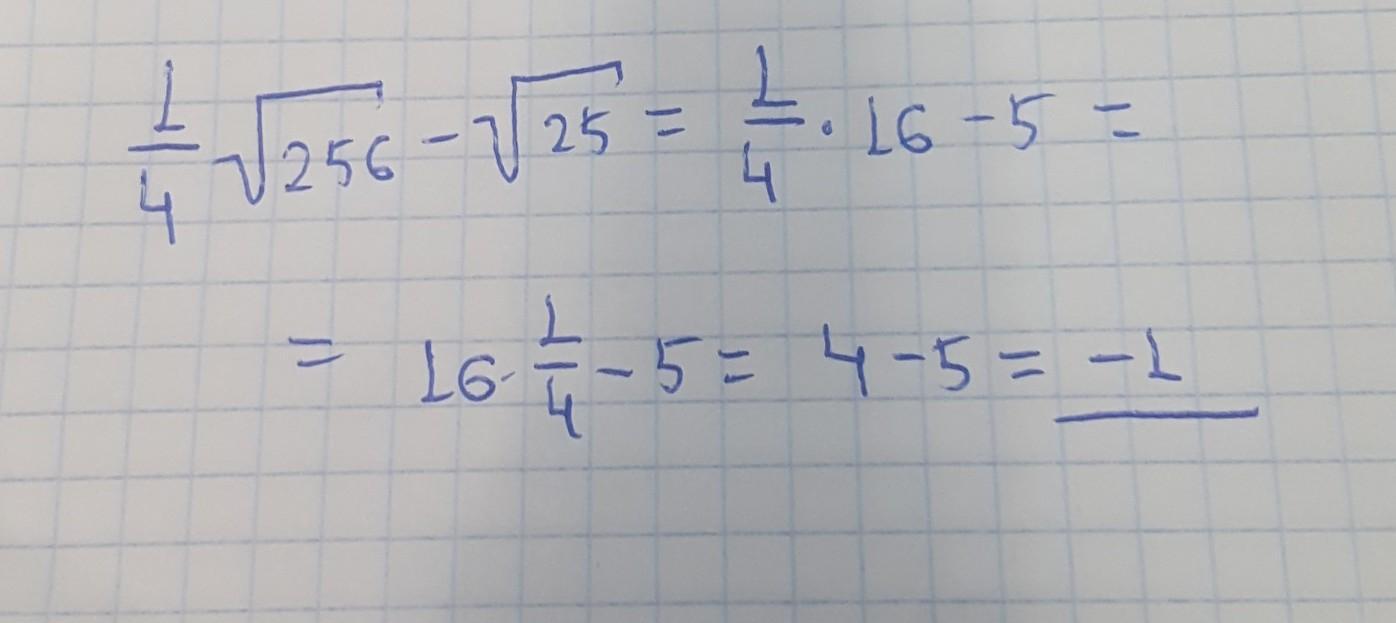 1/4 √256 - √25 = 1/4 · 16 - 5 =
= 16 · 1/4 - 5 = 4 - 5 = -1